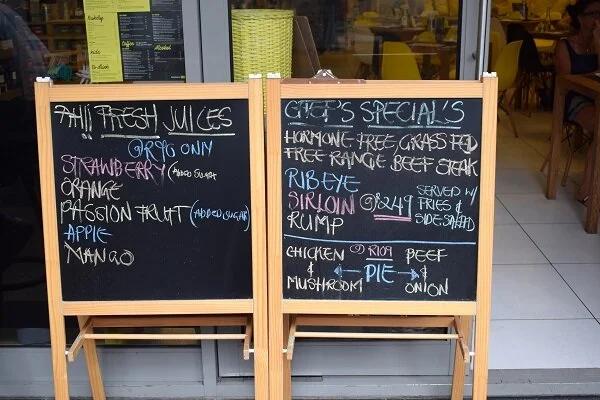 AH!! FRESH JUICES
STRAWBERRY (ADDED SUGAR
ORANGE
PASSION FRUIT (ADDED SUGAR)
APPLE
MANGO
SPECIAL'S
HORMONE FREE, GRASS FED
FREE RANGE BEEF STEAK
RIB EYE
SIRLOIN @ R249
RUMP
SERVED W/
FRIES &
SIDE SALAD
CHICKEN @ R109 BEEF
& PIE &
MUSHROOM ONION
Coffee
Alcohol